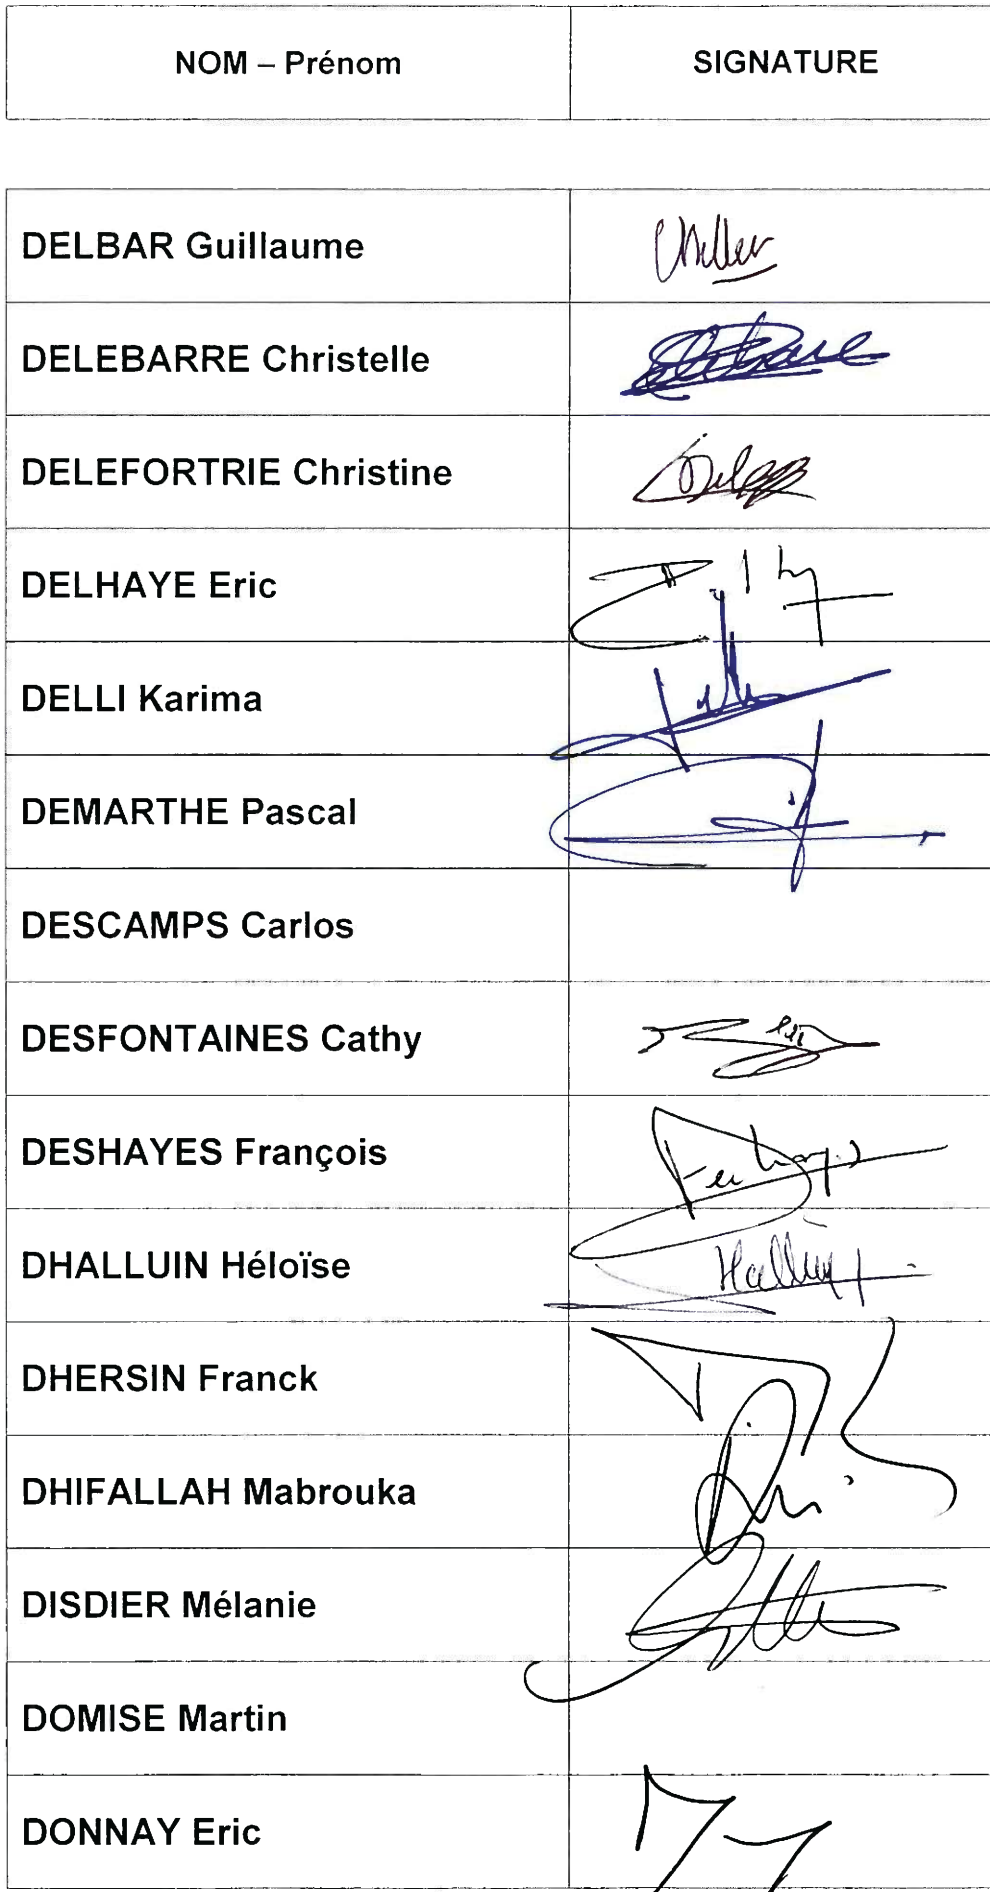 NOM – Prénom SIGNATURE
DELBAR Guillaume
DELEBARRE Christelle
DELEFORTRIE Christine
DELHAYE Eric
DELLI Karima
DEMARTHE Pascal
DESCAMPS Carlos
DESFONTAINES Cathy
DESHAYES François
DHALLUIN Héloïse
DHERSIN Franck
DHIFALLAH Mabrouka
DISDIER Mélanie
DOMISE Martin
DONNAY Eric